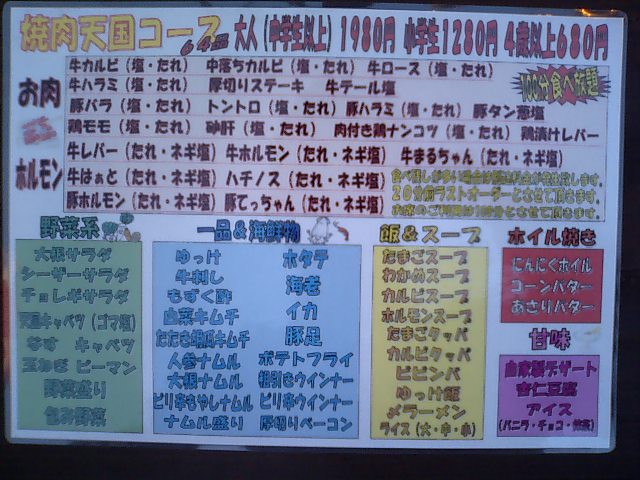 焼肉天国コース 64品 大人(中学生以上)1980円 小学生1280円 4歳以上680円
お肉
牛カルビ(塩・たれ) 中落ちカルビ(塩・たれ) 牛ロース(塩・たれ)
牛ハラミ(塩・たれ) 厚切りステーキ 牛テール塩
100分食べ放題
豚バラ(塩・たれ) トントロ(塩・たれ) 豚ハラミ(塩・たれ) 豚タン葱塩
鶏モモ(塩・たれ) 砂肝(塩・たれ) 肉付き鶏ナンコツ(塩・たれ) 鶏漬けレバー
ホルモン
牛レバー(たれ・ネギ塩) 牛ホルモン(たれ・ネギ塩) 牛まるちゃん(たれ・ネギ塩)
牛はぁと(たれ・ネギ塩) ハチノス(たれ・ネギ塩)
豚ホルモン(たれ・ネギ塩) 豚てっちゃん(たれ・ネギ塩)
20分前ラストオーダーとさせて頂きます。
野菜系
大根サラダ
シーザーサラダ
チョレギサラダ
天国キャベツ(ゴマ塩)
なす キャベツ
玉ねぎ ピーマン
野菜盛り
包み野菜
一品&海鮮物
ゆっけ
牛刺し
もずく酢
白菜キムチ
たたき胡瓜キムチ
人参ナムル
大根ナムル
ピリ辛もやしナムル
ナムル盛り
ホタテ
海老
イカ
豚足
ポテトフライ
粗引きウインナー
ピリ辛ウインナー
厚切りベーコン
飯&スープ
たまごスープ
わかめスープ
カルビスープ
ホルモンスープ
たまごクッパ
カルビクッパ
ビビンバ
ゆっけ飯
〆ラーメン
ライス(大・中・小)
ホイル焼き
にんにくホイル
コーンバター
あさりバター
甘味
自家製デザート
杏仁豆腐
アイス
(バニラ・チョコ・抹茶)